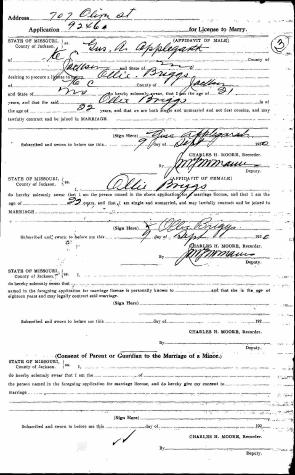 Address 707 Olive st
Application 92460 for License to Marry.
STATE OF MISSOURI, (AFFIDAVIT OF MALE)
County of Jackson. Gus. A. Applegast
K C County of
Jackson and State of Mo
desiring to procure a license to Ollie Briggs
of K C County of Jackson
and State of Mo do hereby solemnly swear, that I am the age of 31
years, and that the said Ollie Briggs is of the
age of 22 years, and that we are both single and unmarried and not first cousins, and may
lawfully contract and be joined in MARRIAGE.
(Sign Here)
Subscribed and sworn to before me this 9 day of Sept 19
CHARLES H. MOORE, Recorder.
Deputy.
STATE OF MISSOURI, (AFFIDAVIT OF FEMALE)
County of Jackson. Ollie Briggs
do hereby solemnly swear that I am the person named in the foregoing application for marriage license, and that I am the
age of 22 years, and that I am single and unmarried, and may lawfully contract and be joined in
MARRIAGE
(Sign Here) Ollie Briggs
Subscribed and sworn to before me this 9 day of Sept 19
CHARLES H. MOORE, Recorder.
Deputy.
STATE OF MISSOURI,
County of Jackson.
do hereby solemnly swear that
the person named in the foregoing application for marriage license is personally known to and that she is the age of
eighteen years and may legally contract said marriage.
(Sign Here)
Subscribed and sworn to before me this day of 19
CHARLES H. MOORE, Recorder.
Deputy.
(Consent of Parent or Guardian to the Marriage of a Minor.)
STATE OF MISSOURI,
County of Jackson. I,
do hereby solemnly swear that I am the of
the person named in the foregoing application for marriage license, and do hereby give my consent to
marriage
(Sign Here)
Subscribed and sworn to before me this day of 19
CHARLES H. MOORE, Recorder.
Deputy.